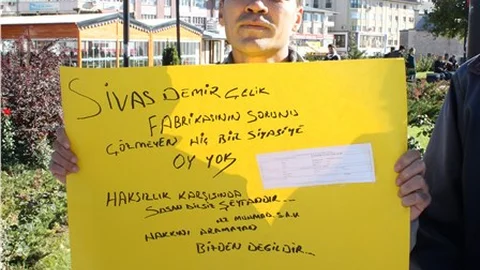 SİVAS DEMİR ÇELİK
FABRİKASININ SORUNUS
ÇÖZMEYEN HİÇ BİR SİYASİYE
OY YOK
HAKSIZLIK KARŞISINDA
SUSAN DİLSİZ ŞEYTANDIR...
HZ MUHMAD. S.A.V
HAKKINI ARAMAYAN
BİZDEN DEĞİLDİR...